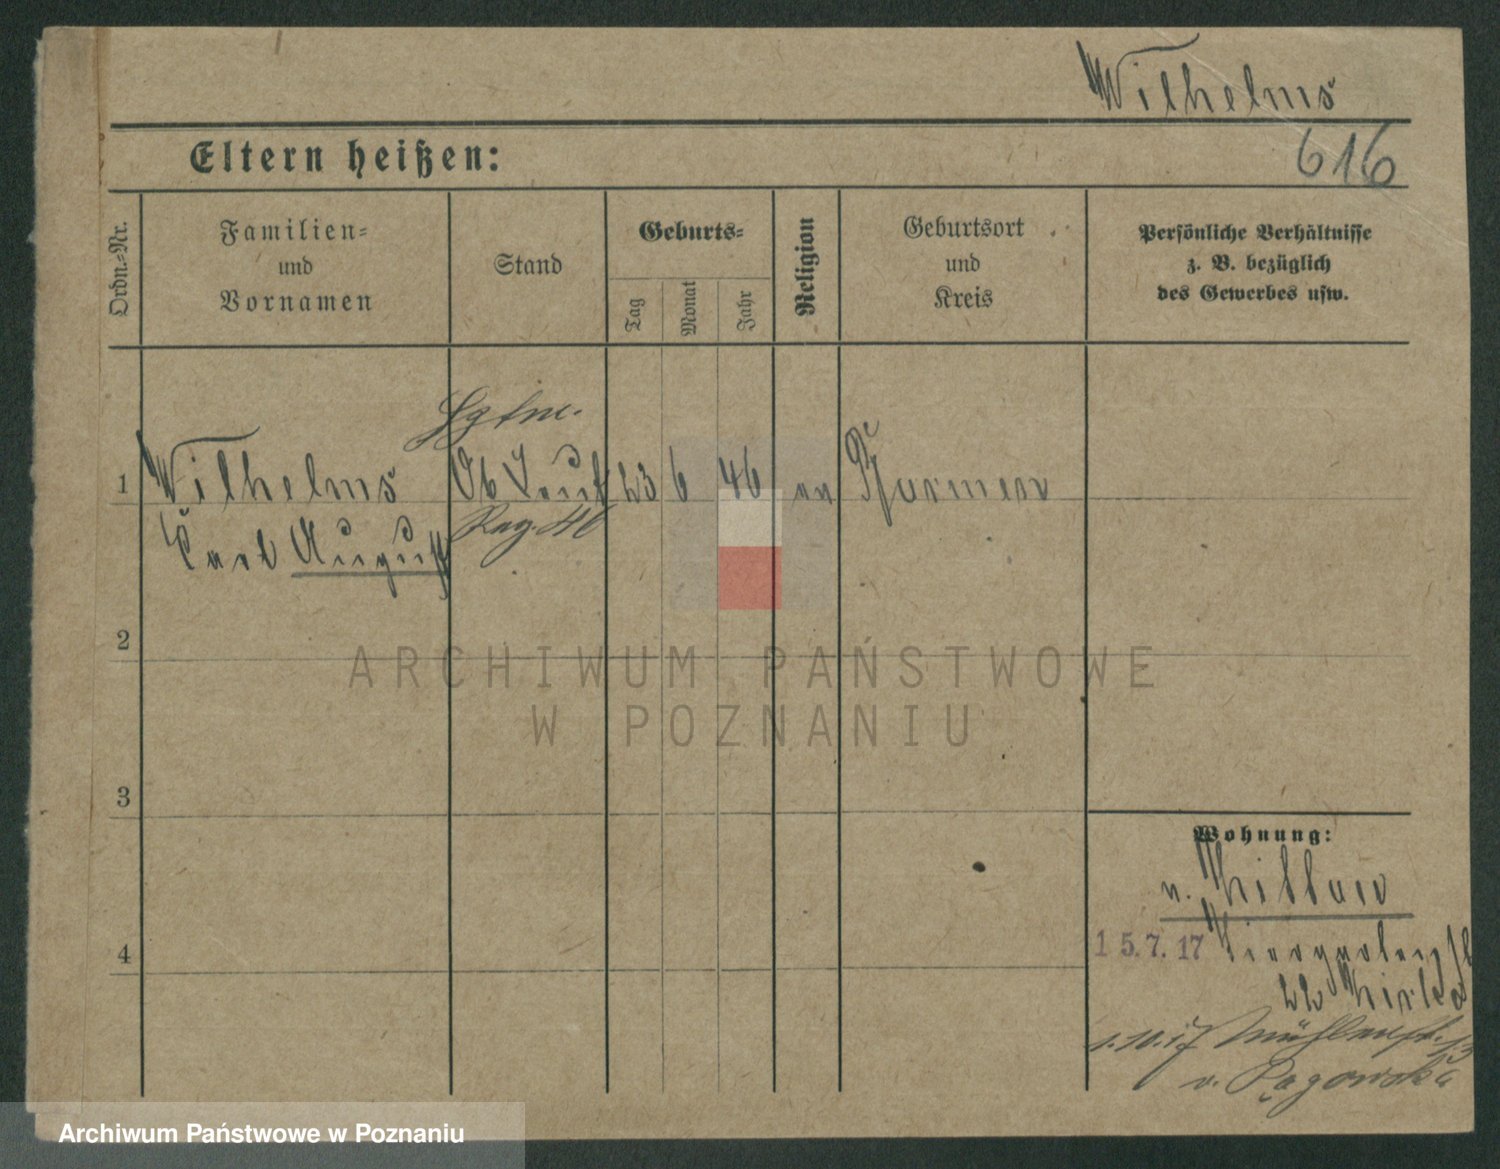 Wilhelms
616
Eltern heißen:
Ordn.-Nr.
Familien-
und
Vornamen
Stand
Geburts-
Tag
Monat
Jahr
Religion
Geburtsort
und
Kreis
Persönliche Verhältnisse
z. B. bezüglich
des Gewerbes usw.
1 Wilhelms Ob 23 6 46 ev Barmen
Carl August Reg. 46
2
3
4
ARCHIWUM PAŃSTWOWE
W POZNANIU
Wohnung:
v.
15.7.17
22
1.10.17 Mühlenstr. 13
v. Pągowska
Archiwum Państwowe w Poznaniu